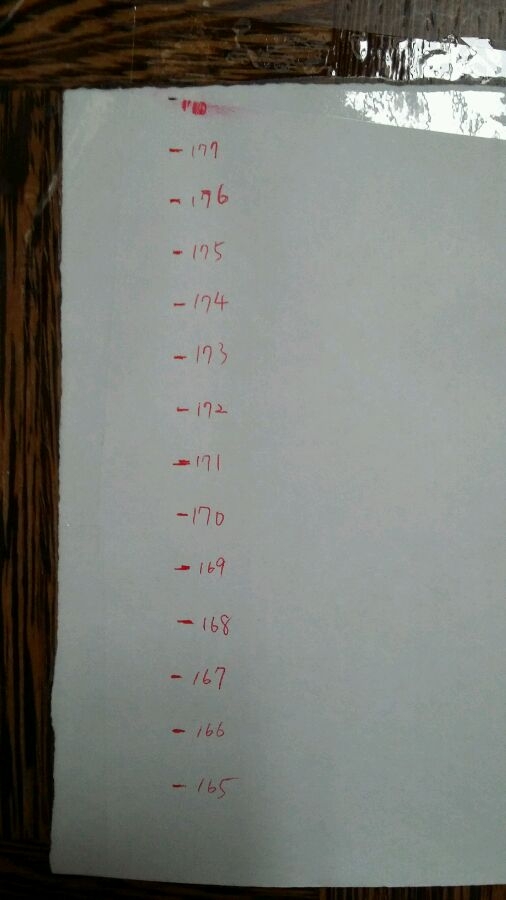 - 177
- 176
- 175
- 174
- 173
- 172
- 171
- 170
- 169
- 168
- 167
- 166
- 165